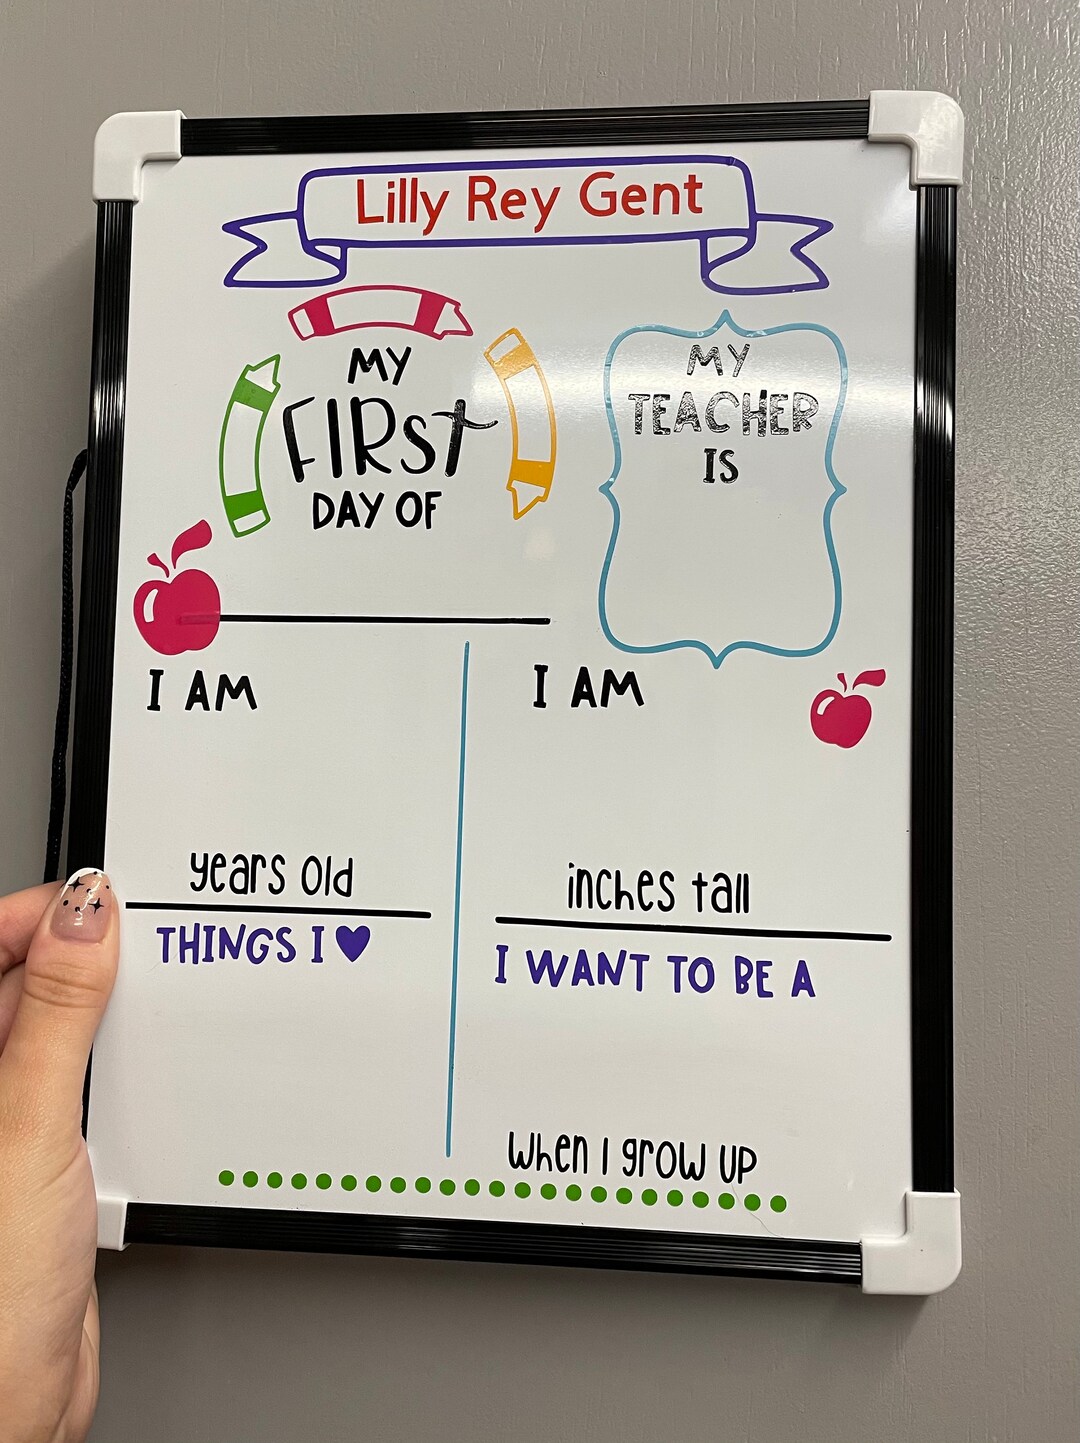 Lilly Rey Gent
MY
FIRST
DAY OF
MY
TEACHER
IS
I AM
years old
THINGS I ♥
I AM
inches tall
I WANT TO BE A
when I grow up